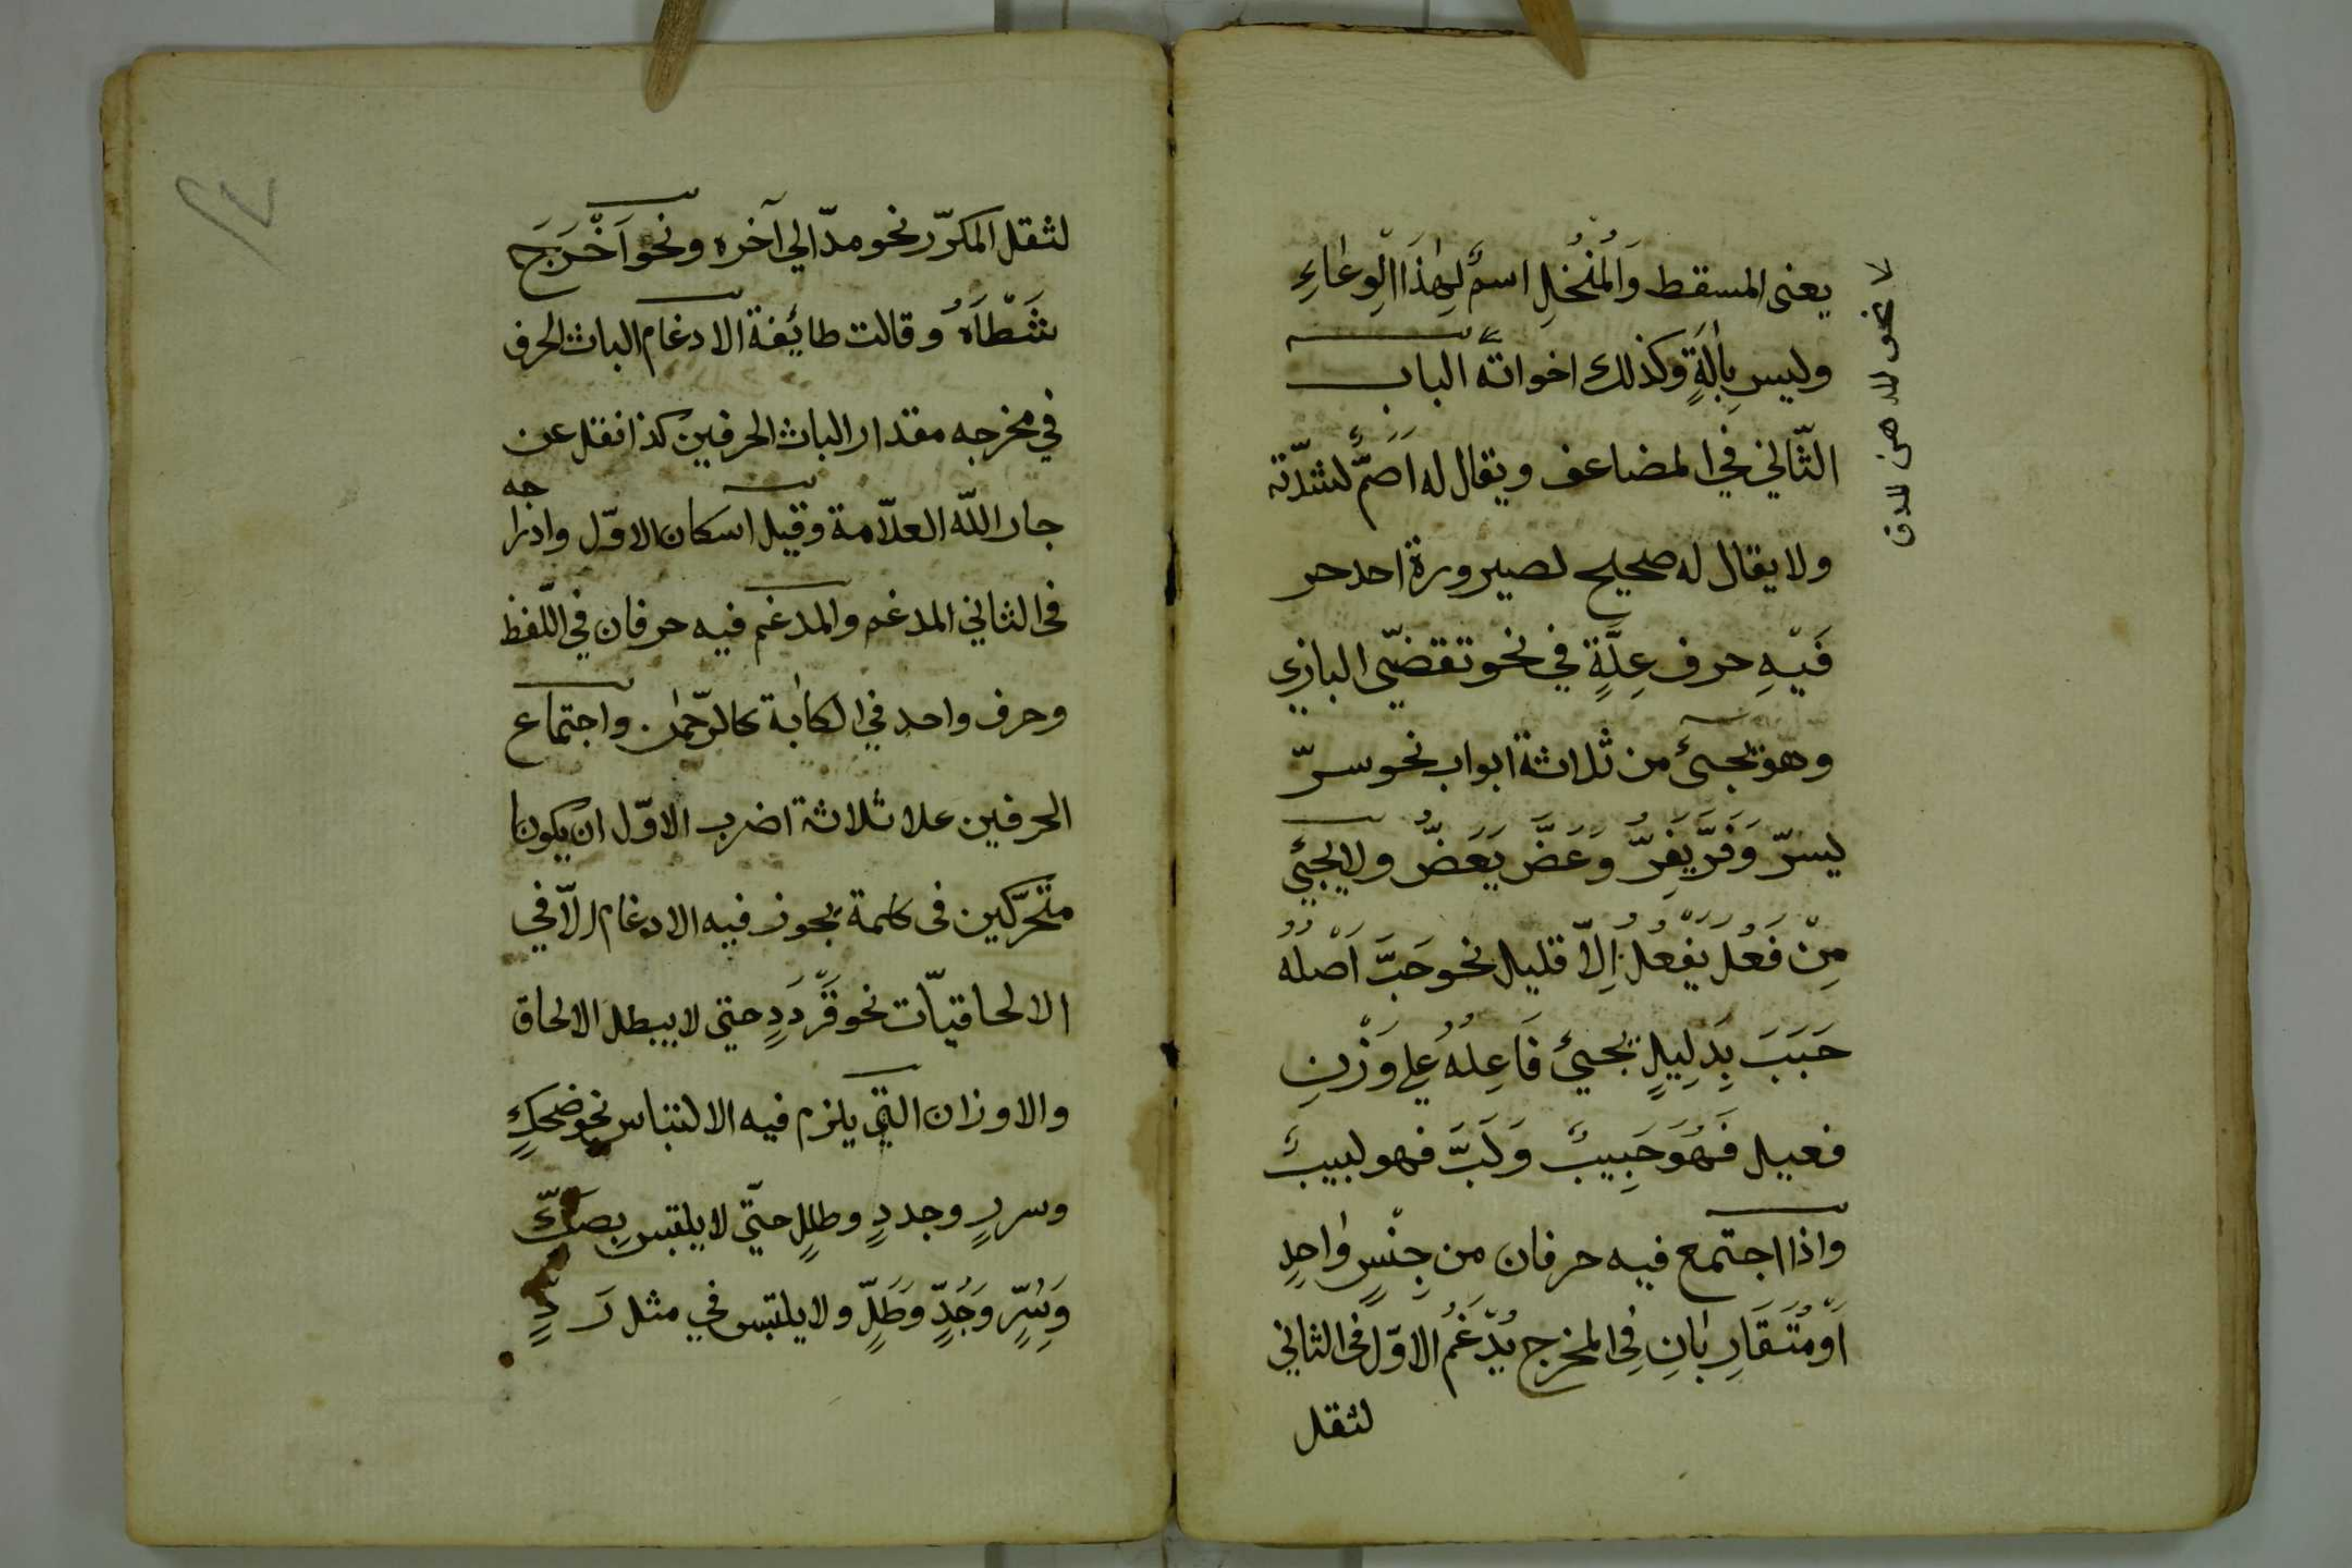 يعنى المسقط وَالْمُنْخُلِ اسمٌ لِهٰذَا الْوِعَاءِ
وليس بِاٰلَةٍ وكذلك اخواتهٌ الباب
الثّاني في المضاعف ويقال له اَصَمٌّ لشدّته
ولا يقال له صحيح لصيرورة احد حر
فَيْهِ حرف عِلَّةٍ في نحو تقضّي البازي
وهو يجىئ من ثلاثة ابواب نحو سرّ
يسرّ وَفَرَّ يَفِرُّ وَعَضَّ يَعَضُّ ولا يجيئ
مِنْ فَعُلَ يَفْعُلُ اِلاّ قليل نحو حَبَّ اَصْلُهُ
حَبَبَ بِدَلِيلٍ يجيئ فَاعِلُهُ عَلي وَزْنِ
فعيل فَهُوَ حَبِيبٌ وَلَبَّ فهو لبيبٌ
واذا اجتمع فيه حرفان من جِنْسٍ وٰاحِدٍ
اَوْ مُتَقَارِبٰانِ فِى المخرج يُدْغَمُ الاوّل فى الثاني
لثقل
لثقل المكرّر نحو مدّ الي آخره ونحو اَخْرَجَ
شَطْأَهُ وقالت طائِفة الادغام الباث الحرف
في مخرجه مقدار الباث الحرفين كذا نقل عن
جار اللّه العلاّمة وقيل اسكان الاوّل وادرا
جه
فى الثاني المدغم والمدغم فيه حرفان في اللّفظ
وحرف واحد في الكتابة كالرّحمٰن . واجتماع
الحرفين علا ثلاثة اضرب الاوّل ان يكونا
متحرّكين فى كلمة يجوز فيه الادغام الاّ في
الالحاقيّات نحو قَرْدَدٍ حتي لا يبطل الالحاق
والاوزان التي يلزم فيه الالتباس نحو ضحكٍ
وسررٍ وجددٍ وطللٍ حتّي لا يلتبس بِصَكٍّ
وَسُرٍّ وَجُدٍّ وَطَلٍّ ولا يلتبس في مثل رَدٍّ